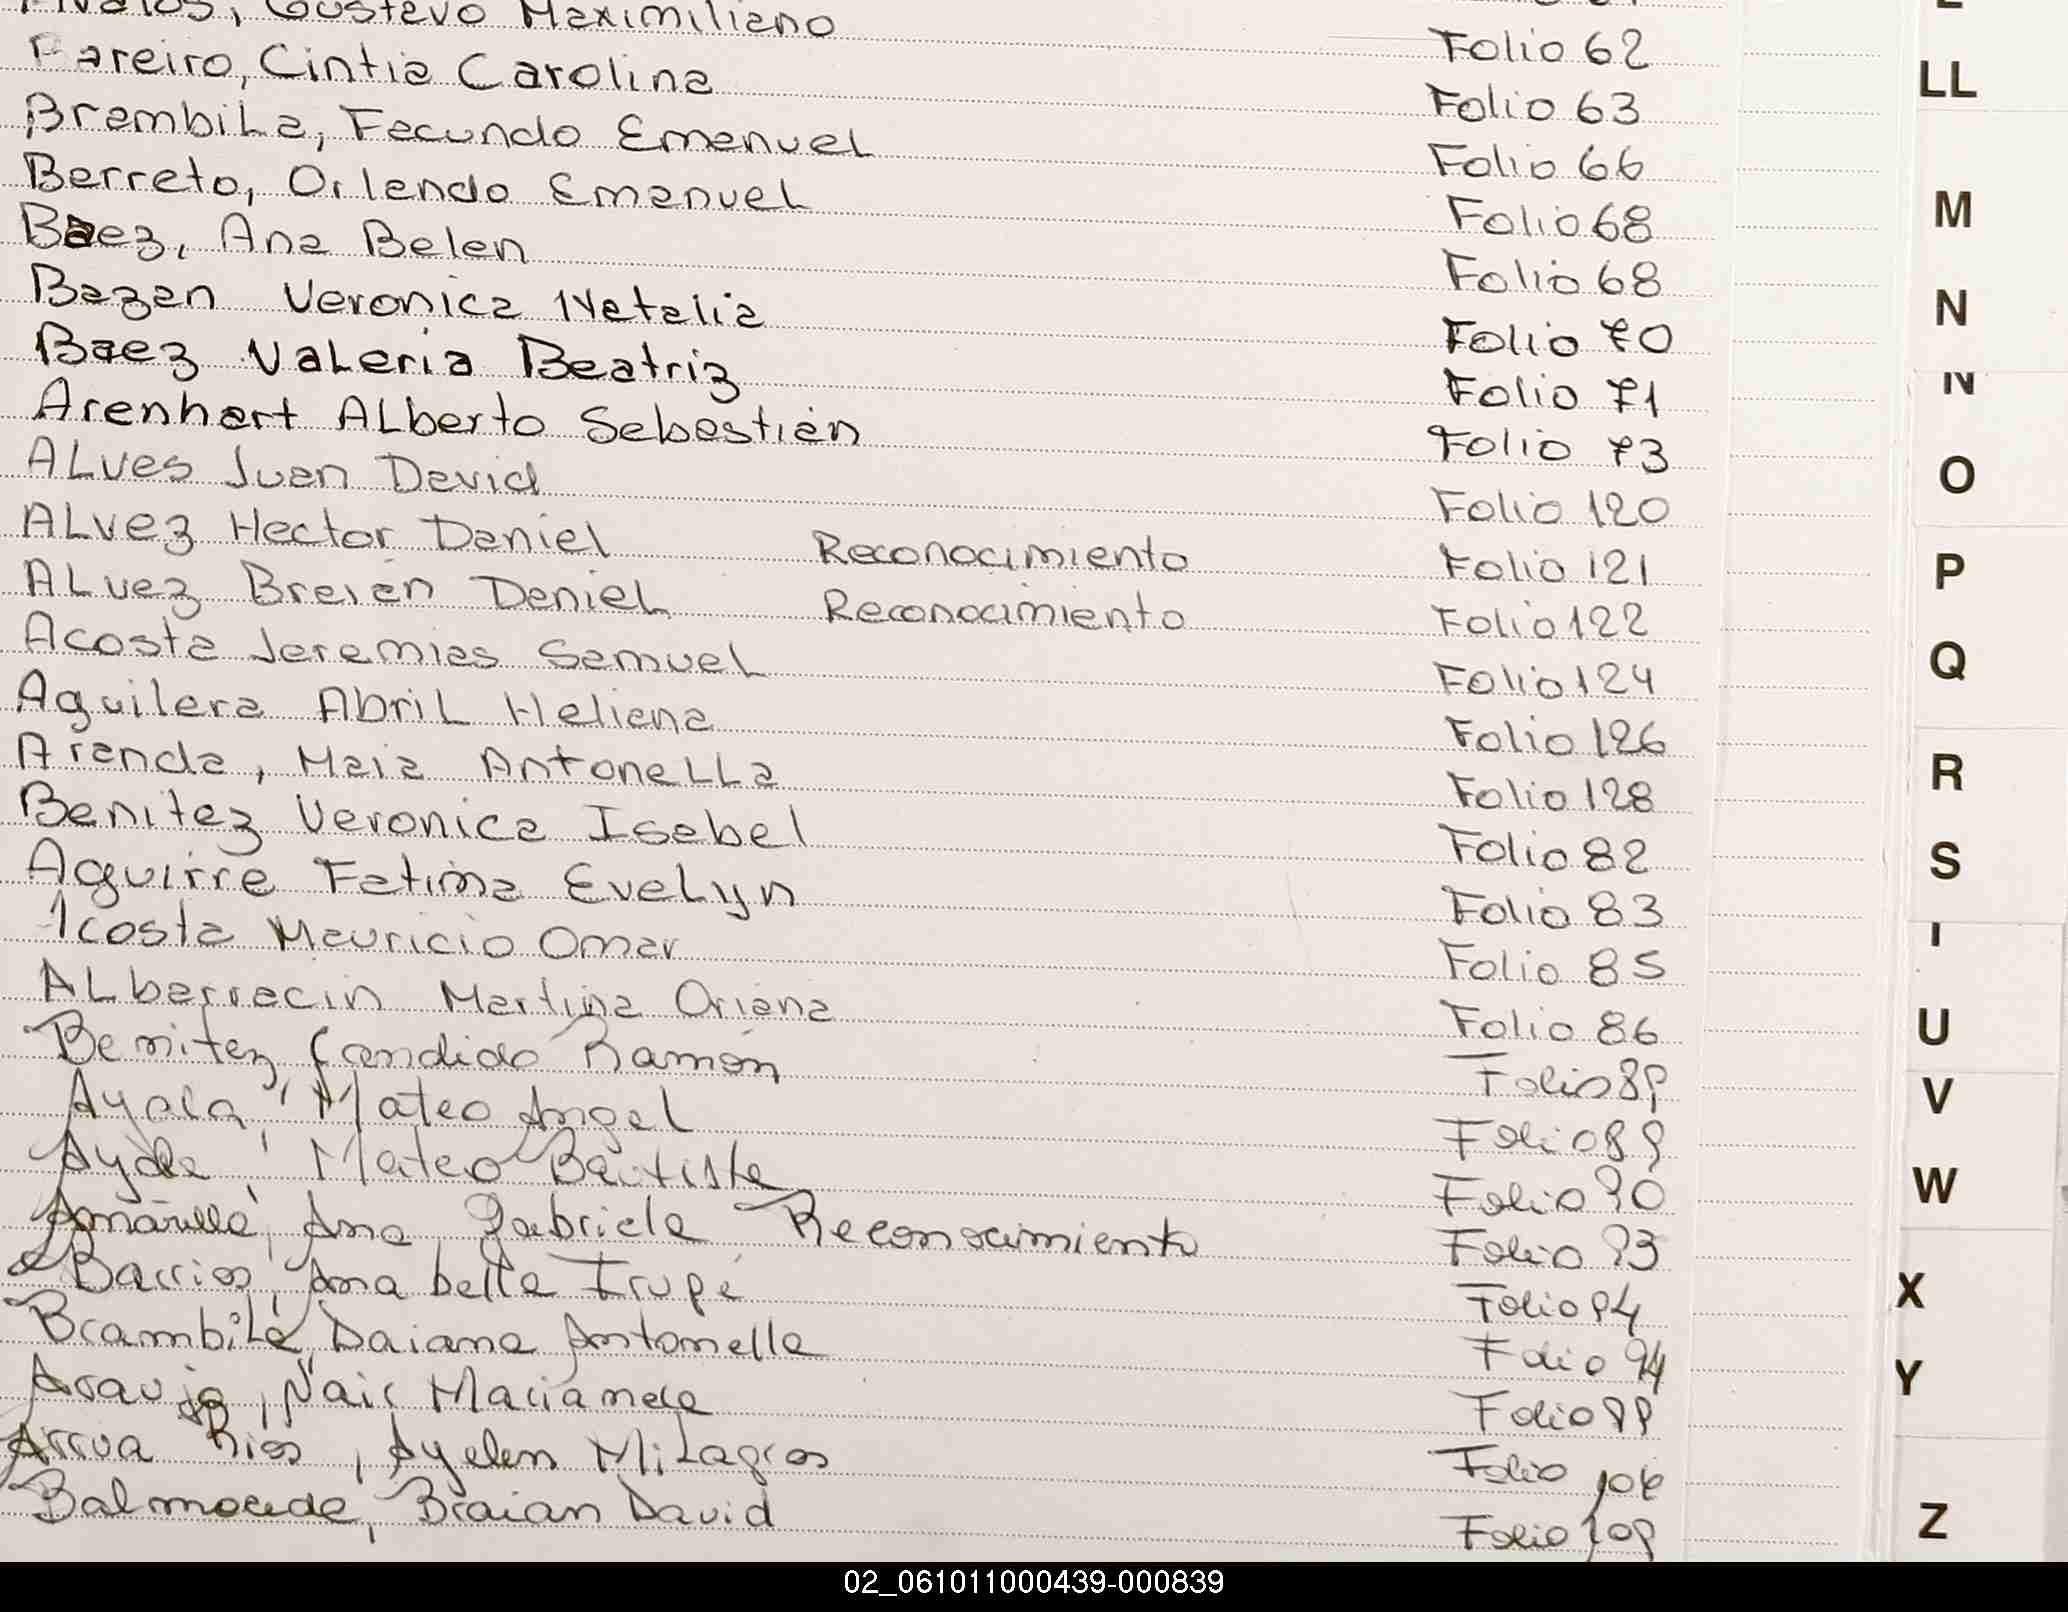 Gustavo Maximiliano
Pareiro, Cintia Carolina Folio 62
BrambiLa, Facundo EmanueL Folio 63
Berreto, Orlando EmanueL Folio 66
Baez, Ana Belen Folio 68
Bazan Veronica Natalia Folio 68
Baez VaLeria Beatriz Folio 70
Arenhart ALberto Sebastián Folio 71
ALves Juan David Folio 73
ALvez Hector Daniel Reconocimiento Folio 120
ALvez Breian DanieL Reconocimiento Folio 121
Acosta Jeremias SamueL Folio 122
Aguilera AbriL Heliana Folio 124
Aranda, Maia AntoneLLa Folio 126
Benitez Veronica Isabel Folio 128
Aguirre Fatima EveLyn Folio 82
Acosta Mauricio Omar Folio 83
ALbarracin Martina Oriana Folio 85
Benitez, Candido Ramón Folio 86
Ayala, Mateo Angel Folio 89
Ayala, Mateo Bautista Folio 89
Amarilla, Ana Gabriela Reconocimiento Folio 90
Barrios, Anabella Irupé Folio 93
BrambiLa, Daiana Antonella Folio 94
Araujo, Nair Marianela Folio 94
Arrua Rios, Ayelen MiLagros Folio 99
Balmaceda, Braian David Folio 106
Folio 109
LL
M
N
N
O
P
Q
R
S
U
V
W
X
Y
Z
02_061011000439-000839